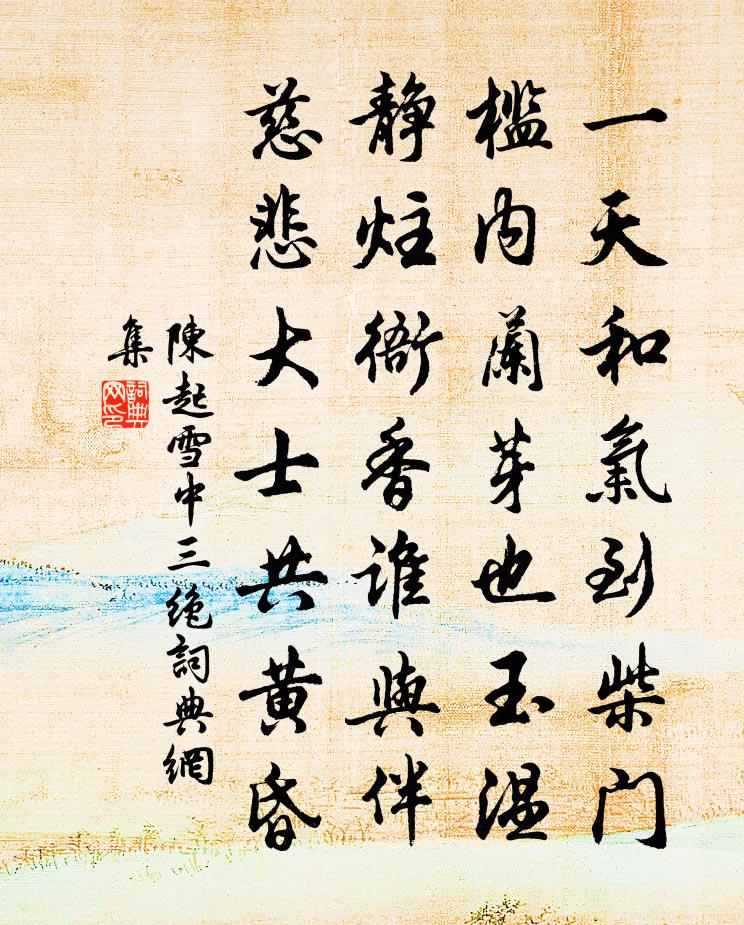 一天和氣到柴門
檻内蘭芽也玉温
静炷衙香誰與伴
慈悲大士共黄昏
陳起雪中三絶詞典網
集
詞典
网印